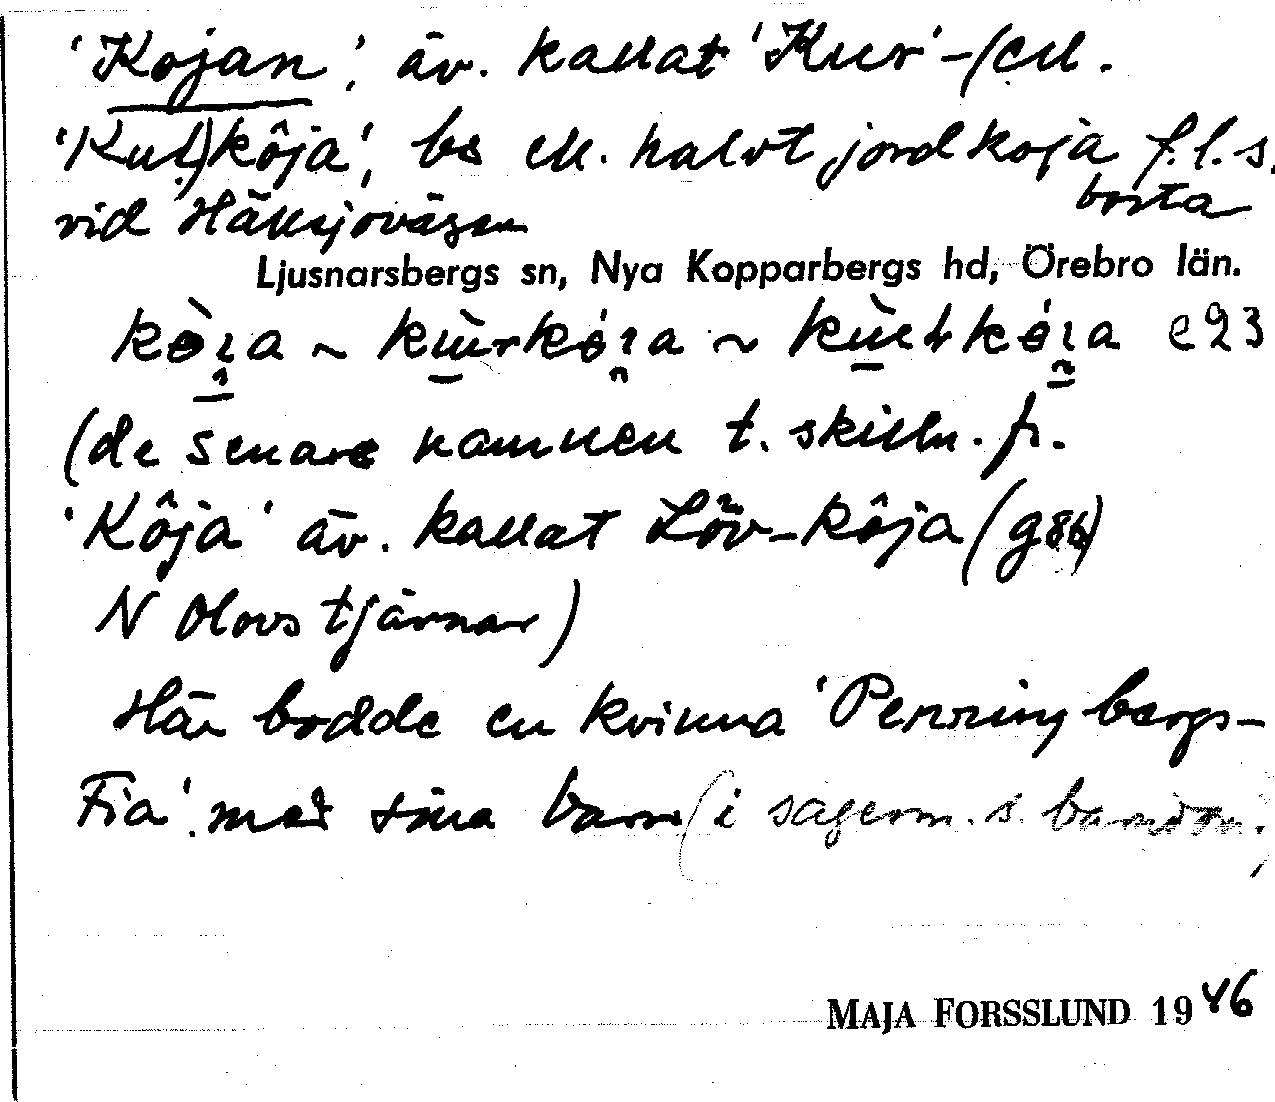 'Kojan', äv. kallat 'Kur'-(ell.
'Kut)kôja', be ell. halvt jordkoja f.l.s.
vid Hällsjovägen borta
Ljusnarsbergs sn, Nya Kopparbergs hd, Örebro län.
e23
(de senare namnen t. skilln. fr.
'Kôja' äv. kallat Löv-kôja (g86)
N Olovstjärnar)
Här bodde en kvinna 'Penningbergs-
Fia' med sina barn (i sagerm. s. barndom.)
MAJA FORSSLUND 1946